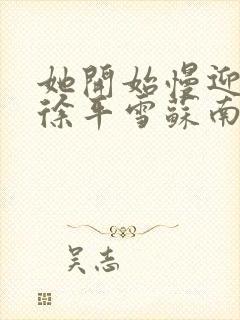 她開始慢迎
徐平雪蘇南
吴志